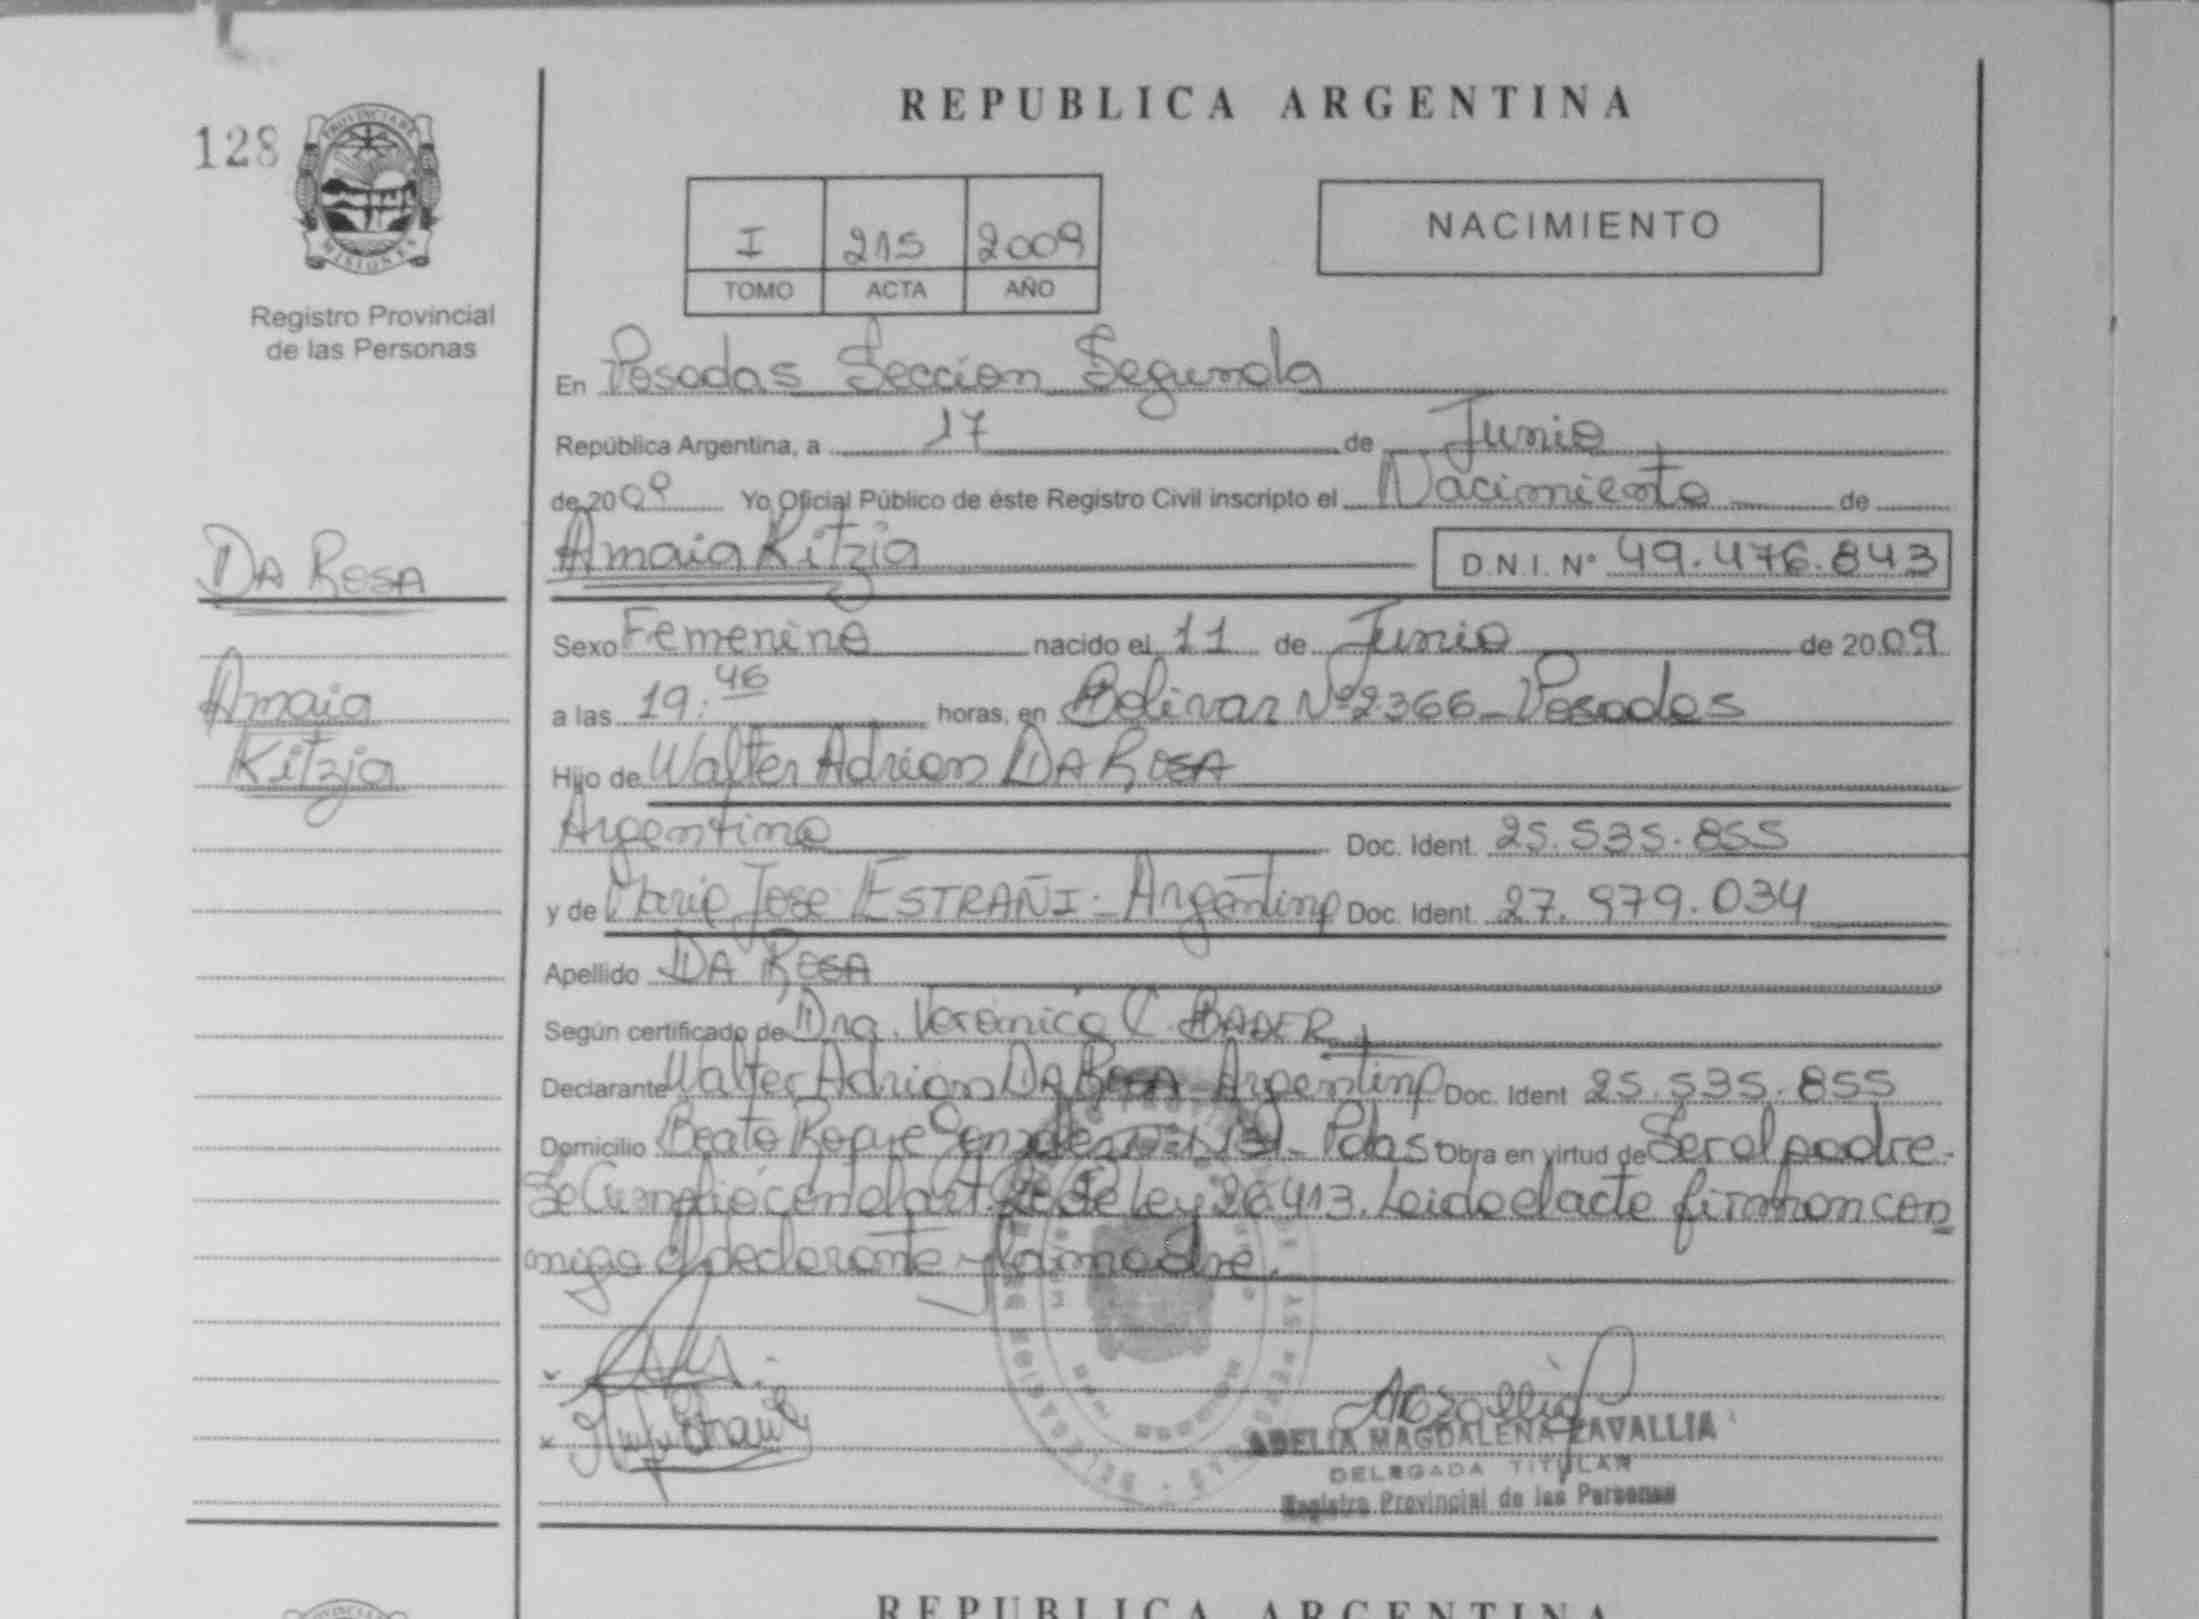 REPUBLICA ARGENTINA
128
PROVINCIA DE
MISIONES
Registro Provincial
de las Personas
I 215 2009
TOMO ACTA AÑO
NACIMIENTO
En Posadas Seccion Segunda
República Argentina, a 17 de Junio
de 2009 Yo Oficial Público de éste Registro Civil inscripto el Nacimiento de
DA ROSA
Amaia Kitzia D.N.I. Nº 49.476.843
Sexo Femenino nacido el 11 de Junio de 2009
Amaia
a las 19:46 horas, en Bolivar Nº 2366 - Posadas
Kitzia
Hijo de Walter Adrian DA ROSA
Argentino Doc. Ident. 25.535.855
y de Maria Jose ESTRAÑI - Argentina Doc. Ident. 27.979.034
Apellido DA ROSA
Según certificado de Dra. Veronica C. BADER
Declarante Walter Adrian DA ROSA - Argentino Doc. Ident 25.535.855
Domicilio Beato Roque Gonzalez 1131 - Pdas Obra en virtud de Ser el padre.
Se Cumplió con el art. de Ley 26.413. Leido el acto firman con
migo el declarante y la madre.
ADELIA MAGDALENA ZAVALLIA
DELEGADA TITULAR
Registro Provincial de las Personas
REPUBLICA ARGENTINA